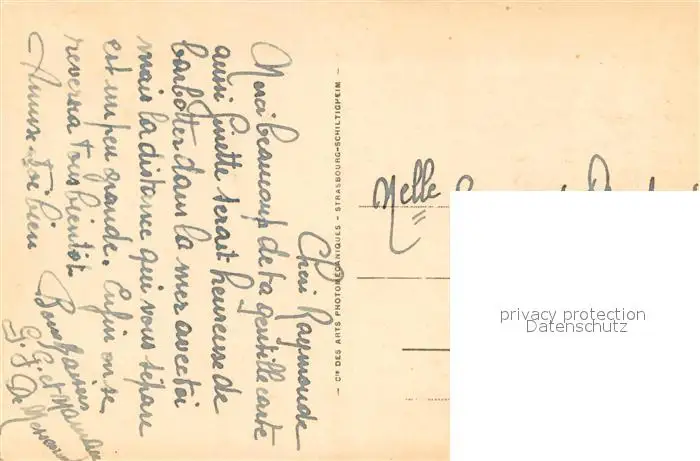 Cheri Raymonde
Merci beaucoup de ta gentille carte
aussi Ginette serait heureuse de
barboter dans la mer avec toi
mais la distance qui vous sépare
est un peu grande. Enfin on se
reverra tous bientôt
Amuse-toi bien
Bons Baisers
G. et
G. J. De
— Cie DES ARTS PHOTOMÉCANIQUES - STRASBOURG-SCHILTIGHEIM —
Melle
privacy protection
Datenschutz